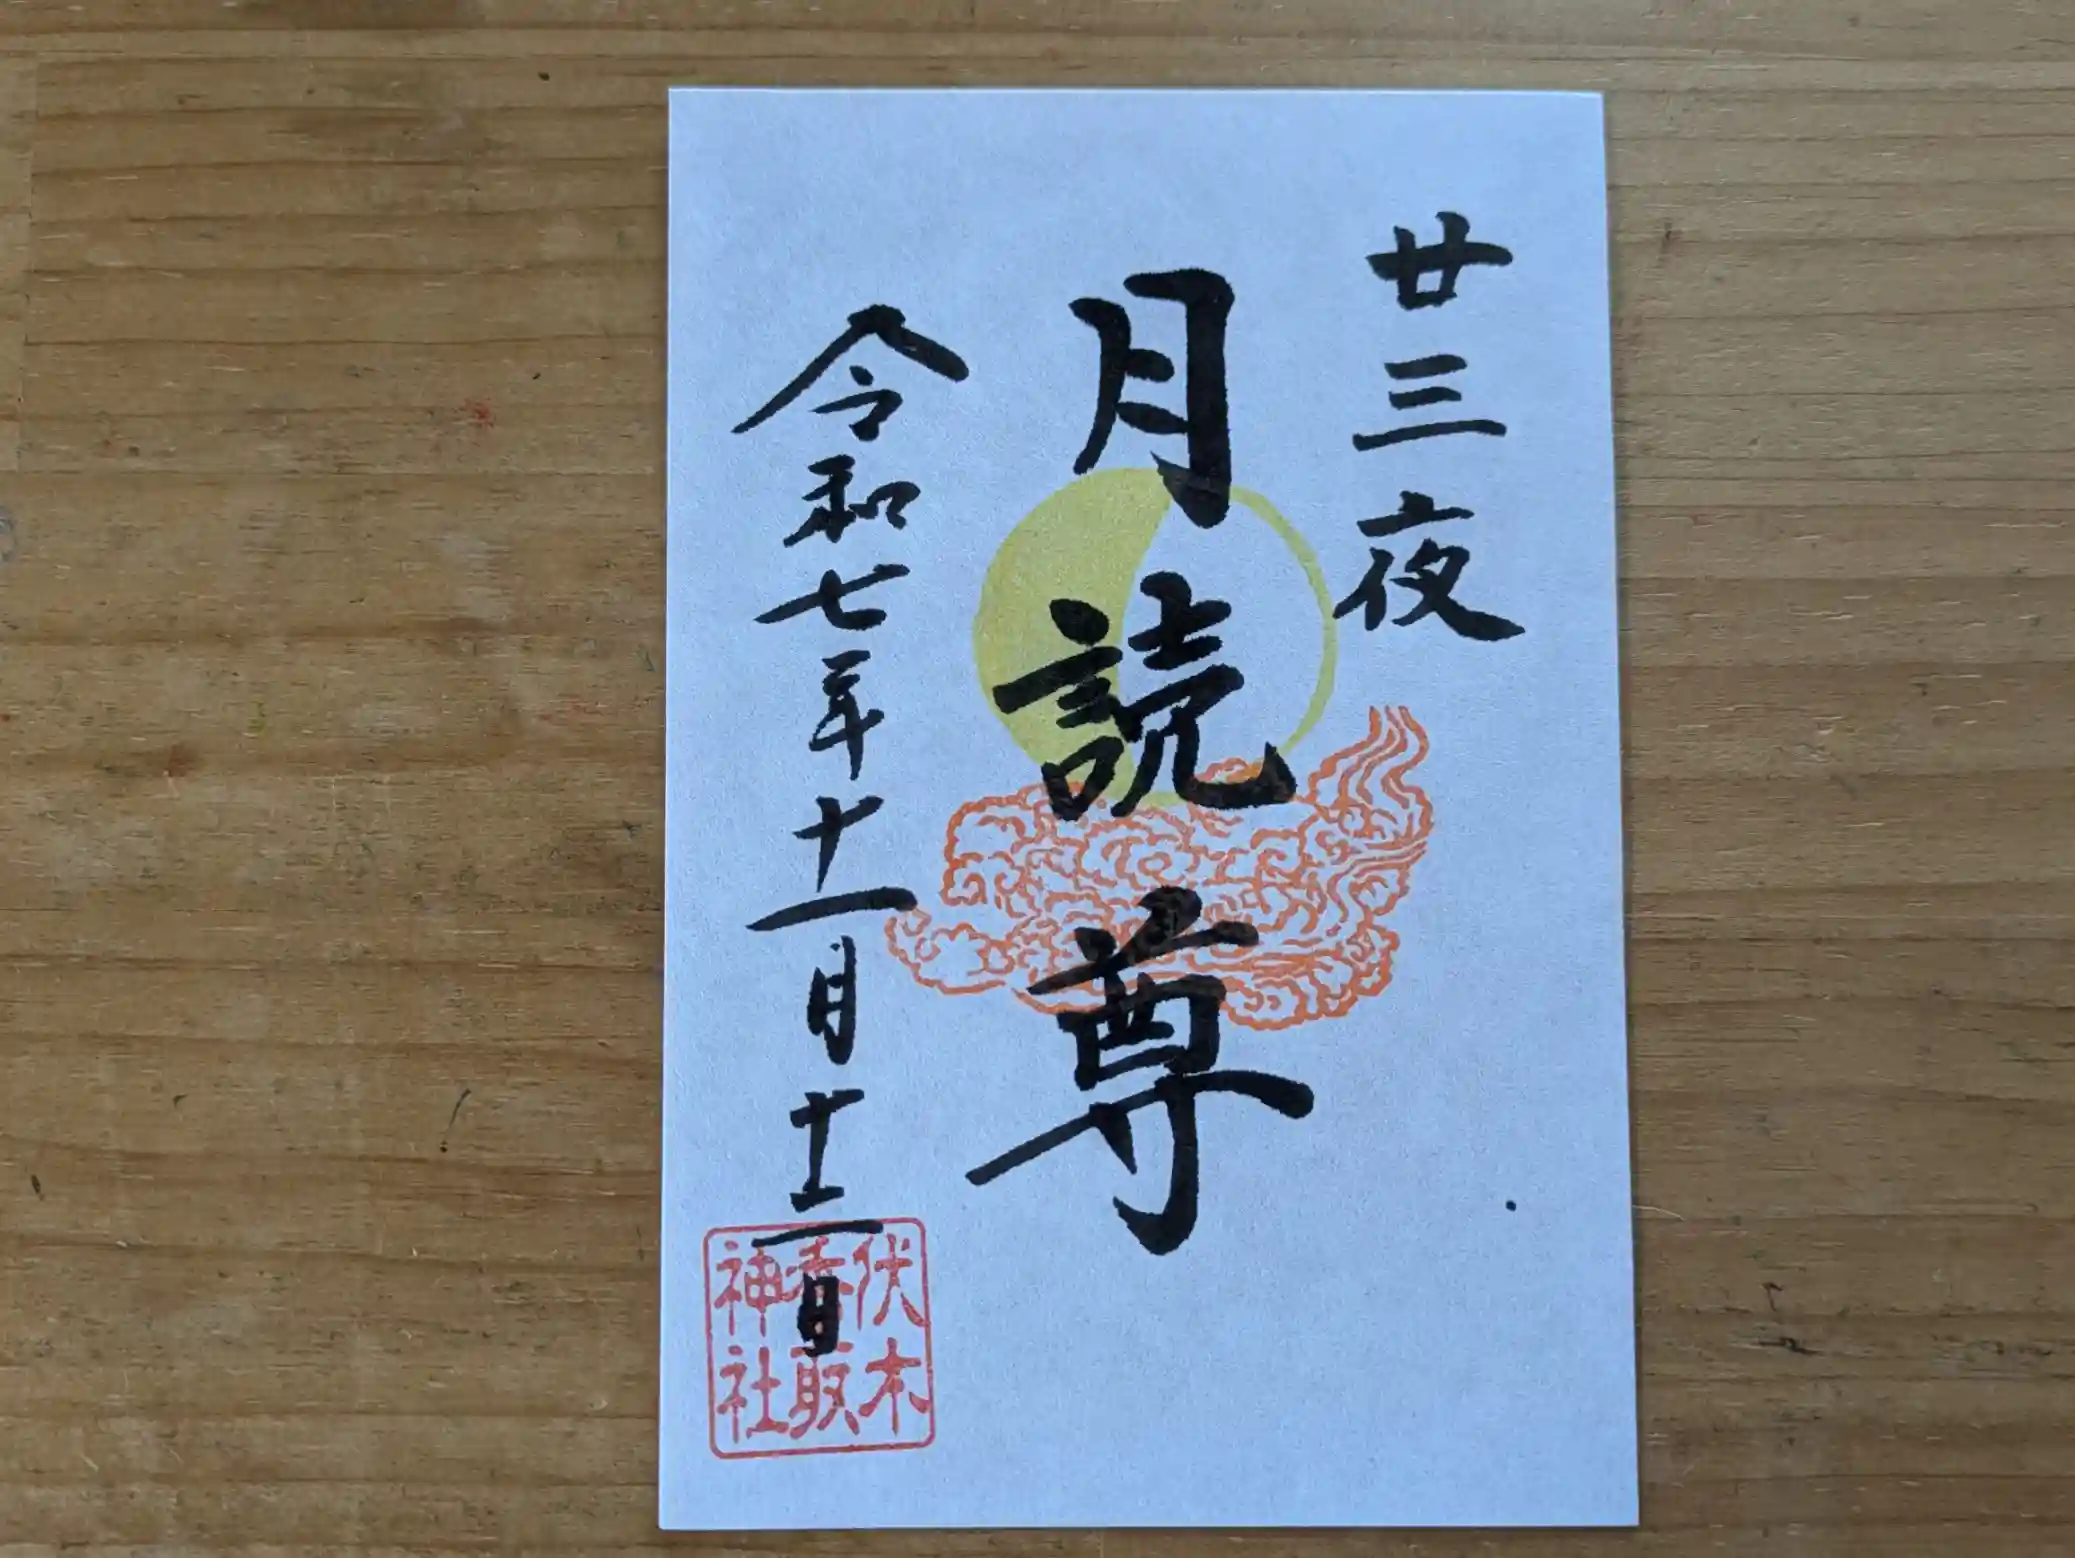 廿三夜
月読尊
令和七年十一月十二日
伏木
香取
神社